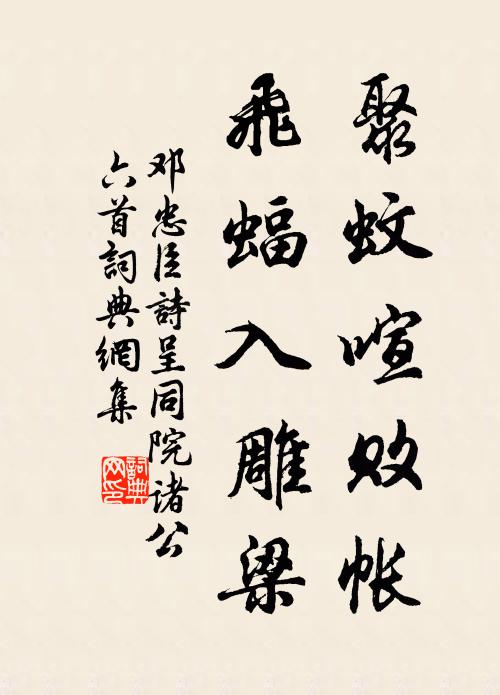 聚蚊喧败帐
飛蝠入雕梁
邓忠臣詩呈同院诸公
六首詞典網集
詞典网印